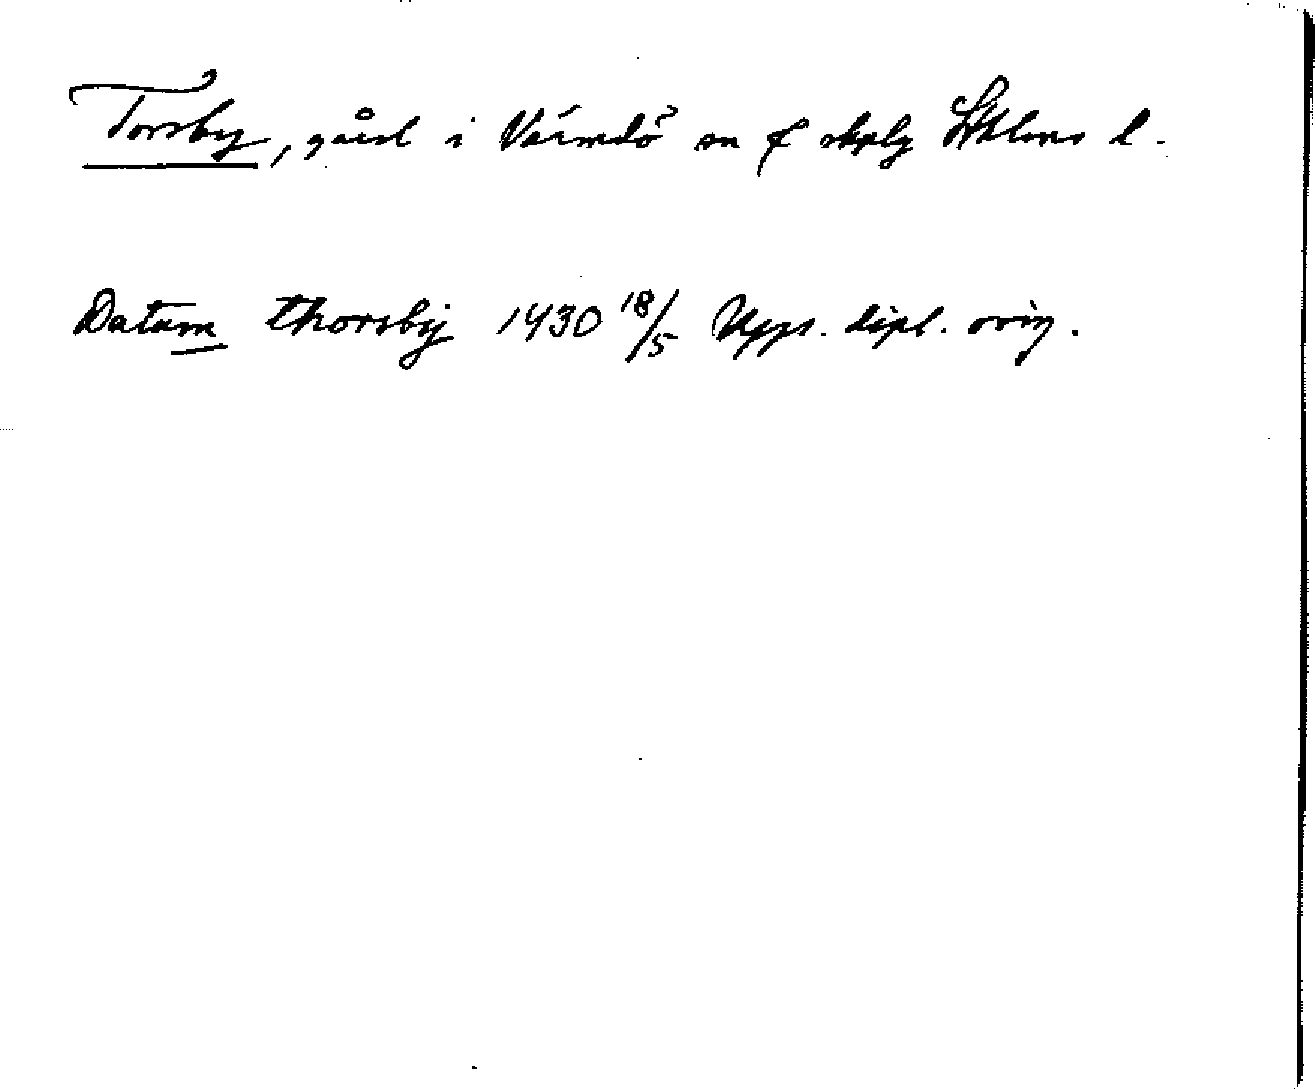 Torsby, gård i Värmdö sn o skplg Sthlms l.
Datum thorsby 1430 18/5 Upps. dipl. orig.